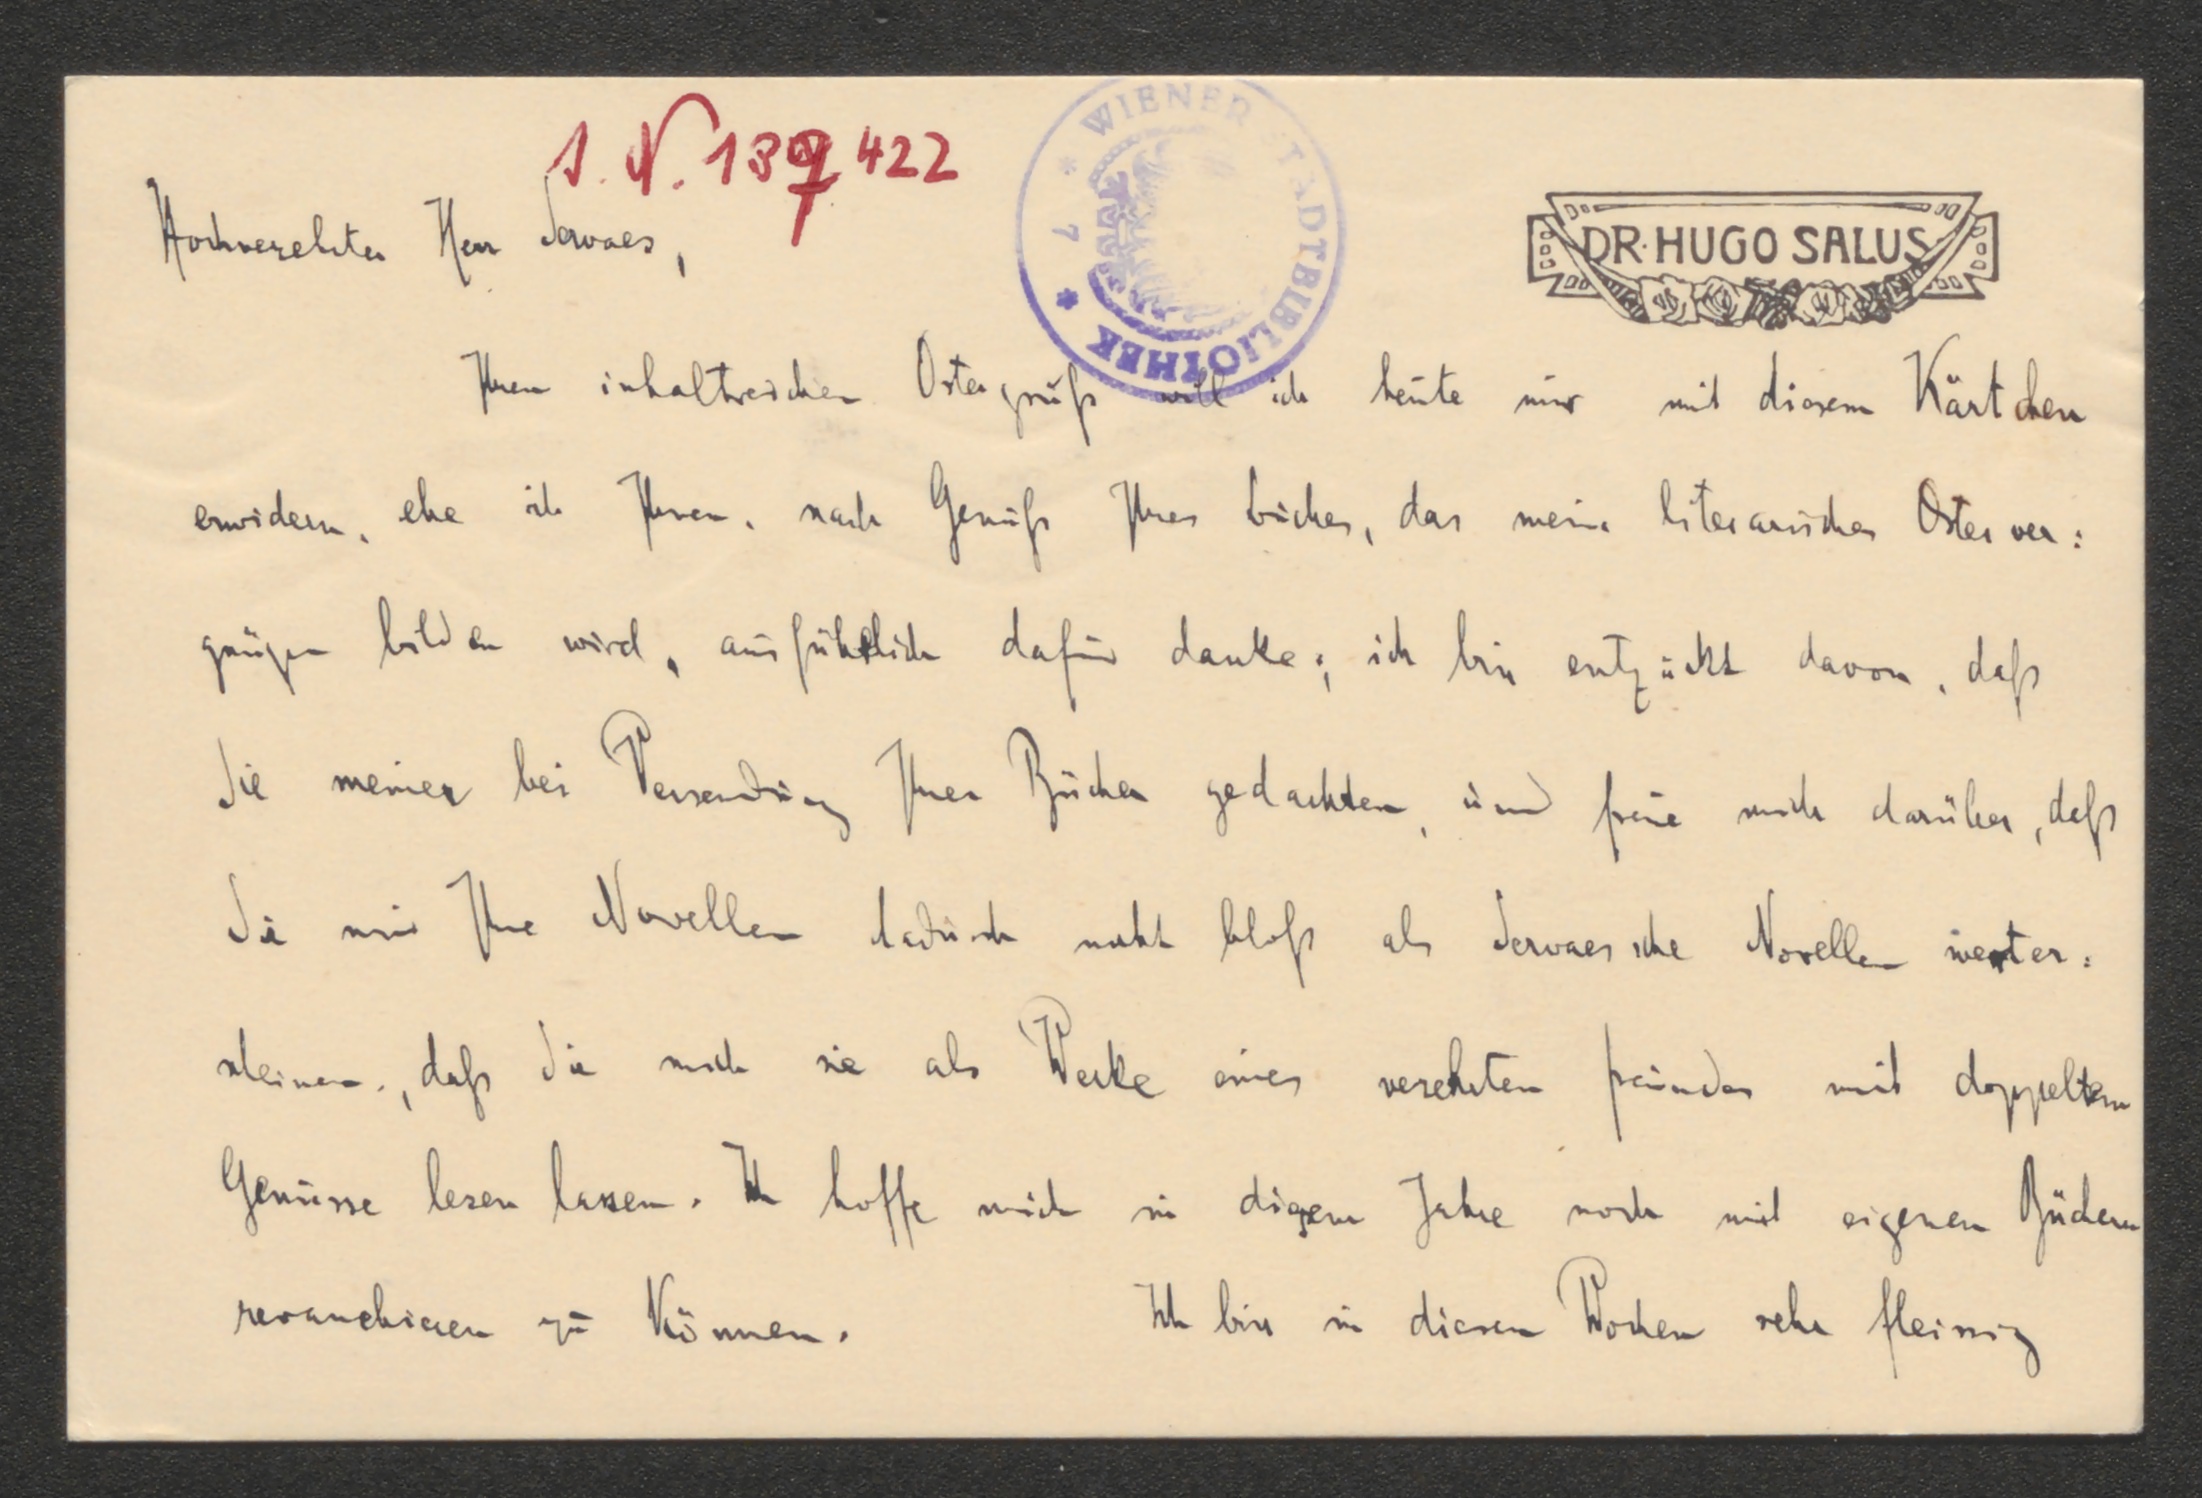 I. N. 137422
WIENER STADTBIBLIOTHEK
* 7 *
DR. HUGO SALUS
Hochverehrter Herr Servaes,
Ihren inhaltreichen Ostergruß will ich heute nur mit diesem Kärtchen
erwidern, ehe ich Ihnen, nach Genuß Ihres Buches, das mein literarisches Osterver:
gnügen bilden wird, ausführlich dafür danke; ich bin entzückt davon, daß
Sie meiner bei Versendung Ihrer Bücher gedachten, und freue mich darüber, daß
Sie mir Ihre Novellen dadurch nicht bloß als Servaessche Novellen
daß Sie mich sie als Werke eines verehrten Freundes mit doppeltem
Genusse lesen lassen. Ich hoffe mich in diesem Jahre noch mit eigenen Büchern
revanchieren zu können. Ich bin in diesen Wochen sehr fleissig